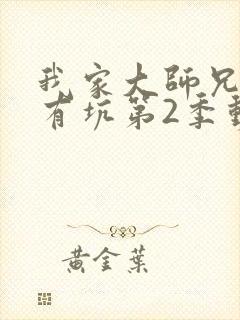 我家大師兄
有坑第2季動
黃金葉